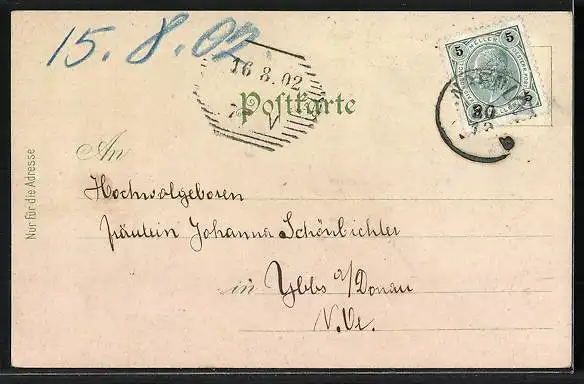 15.8.02
16 8.02
5
HELLER
5
5
Postkarte
Nur für die Adresse
An
Hochwolgeboren
Fräulein Johanna Schönbichler
in Ybbs a/Donau
N.Oe.